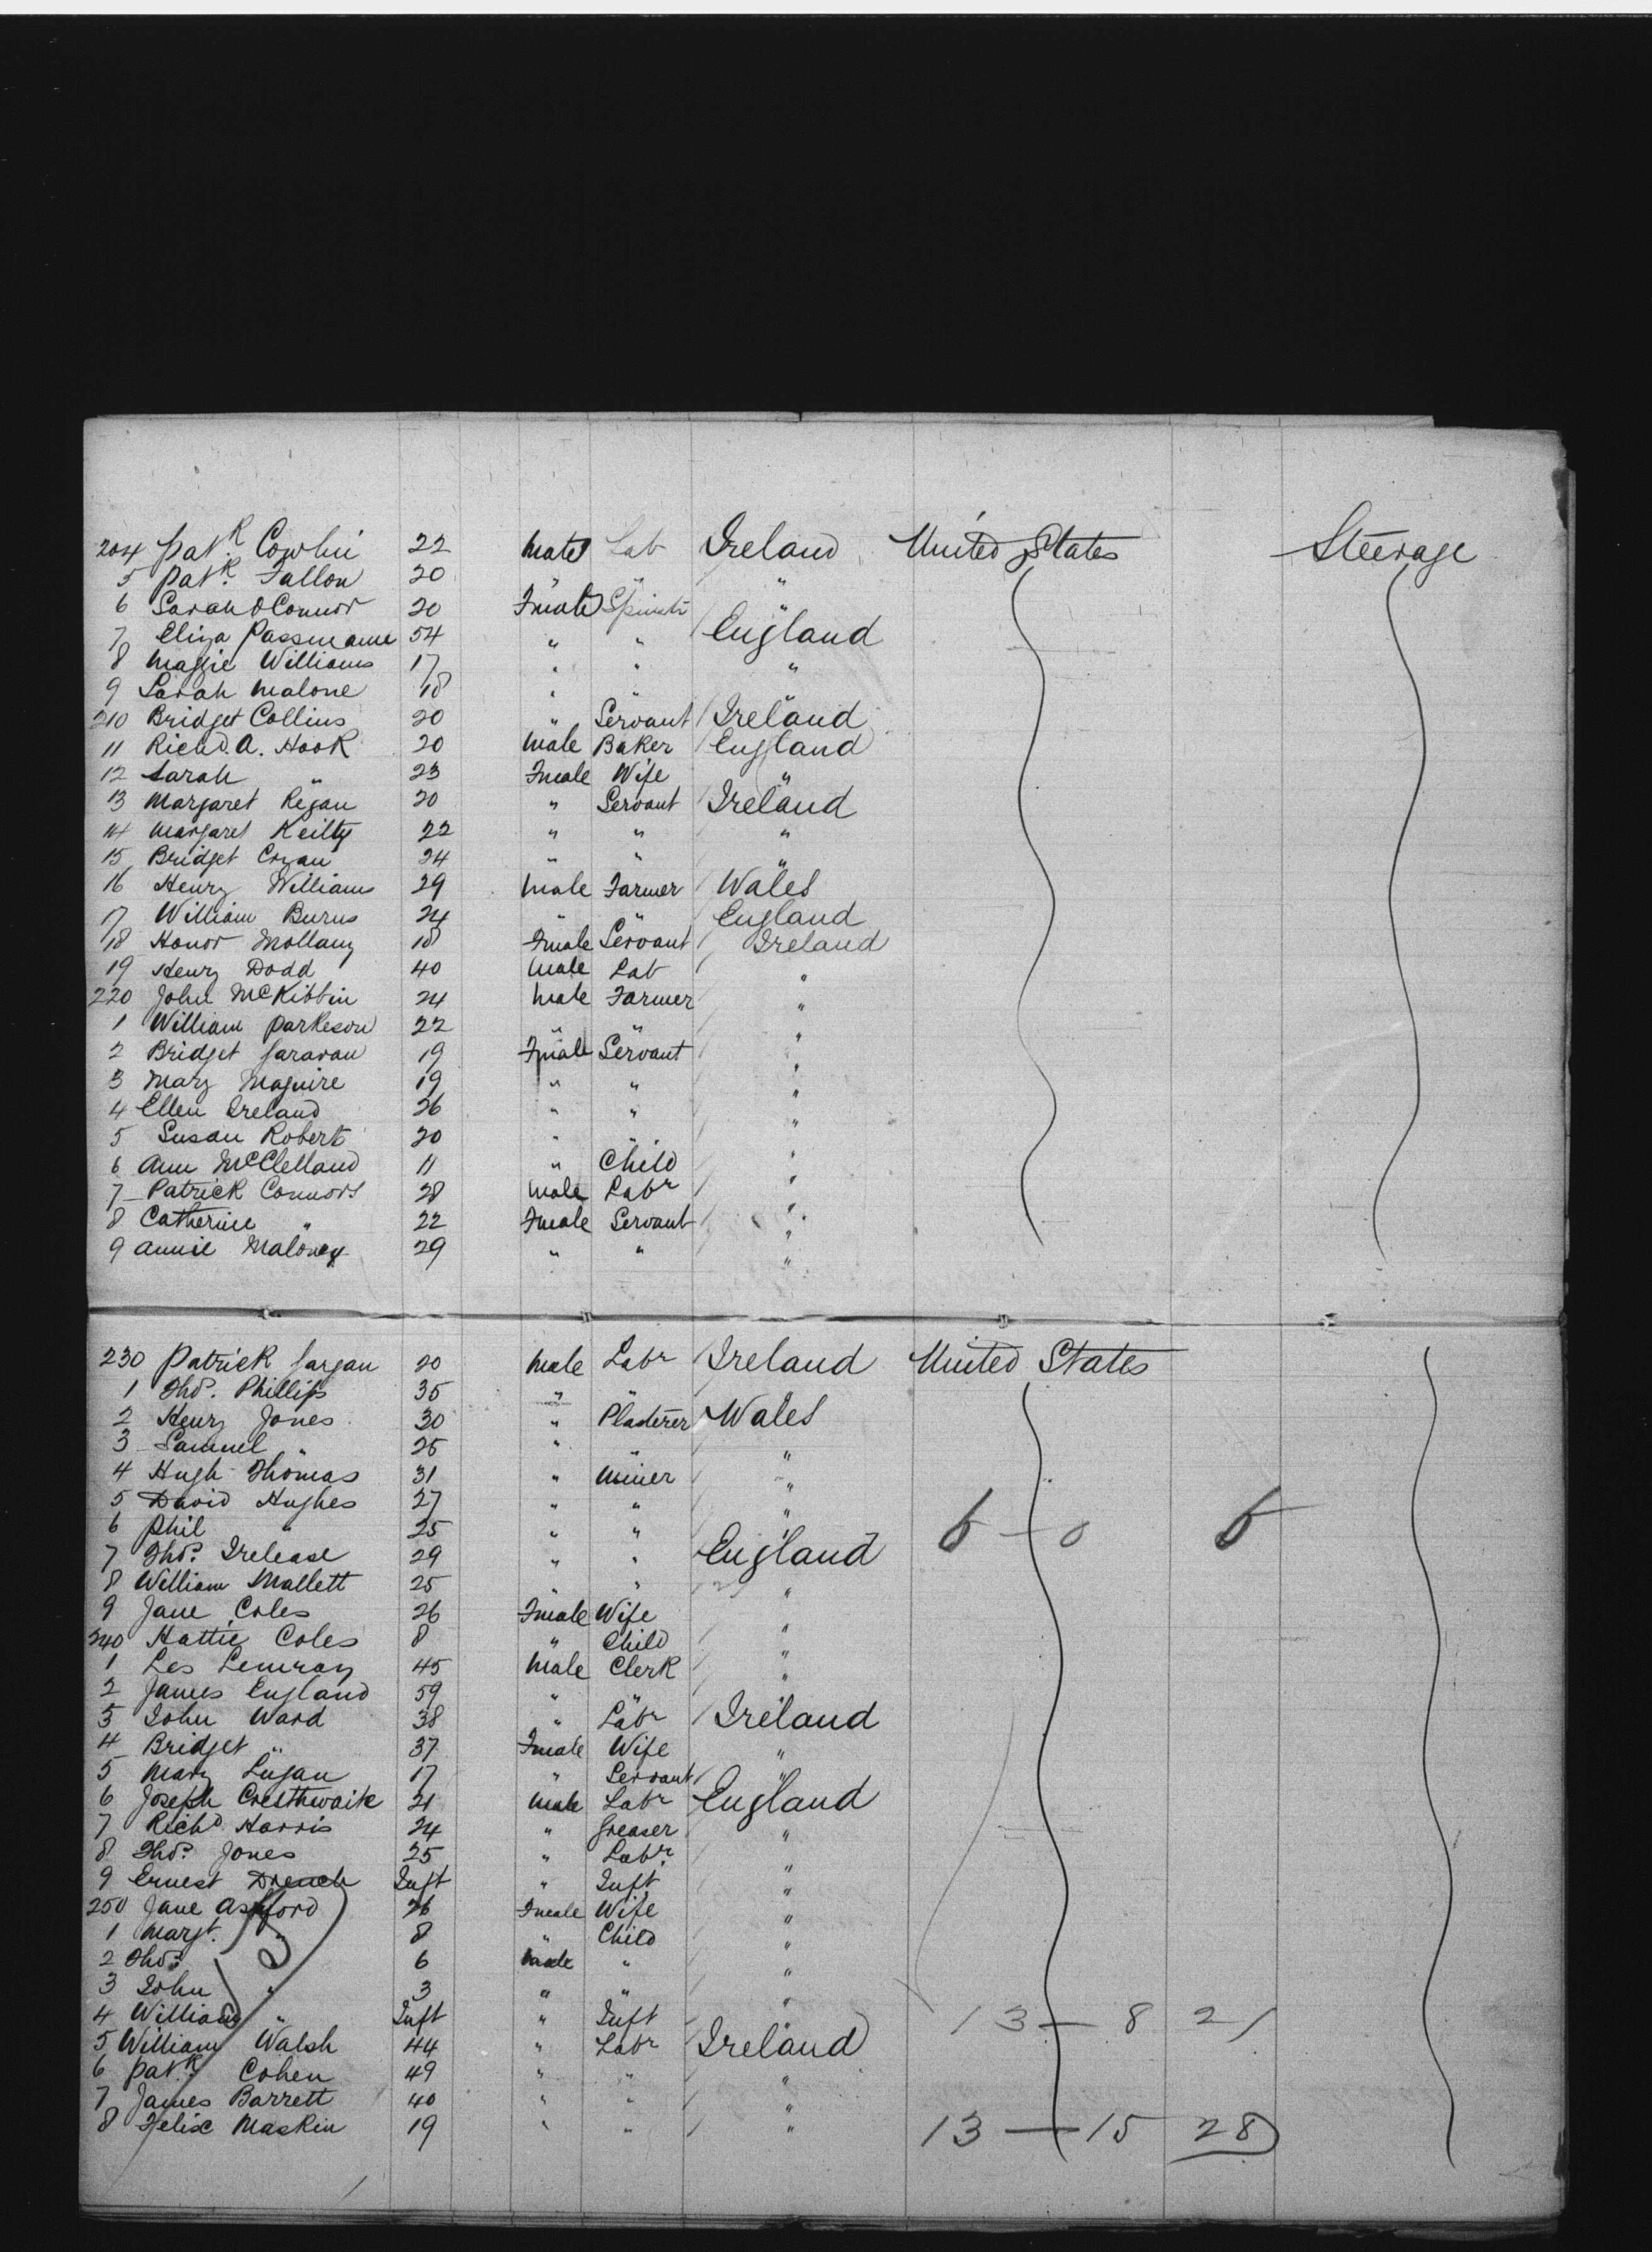 204 Patk. Cowhii 22 Male Lab Ireland United States Steerage
5 Patk. Fallon 20 " " "
6 Sarah OConnor 20 Fmale Spinstr "
7 Eliza 54 " " England
8 Maggie Williams 17 " " "
9 Sarah Malone 18 " " "
210 Bridget Collins 20 " Servant Ireland
11 Richd. A. Hook 20 Male Baker England
12 Sarah " 23 Fmale Wife "
13 Margaret Regan 20 " Servant Ireland
14 Margaret Keilty 22 " " "
15 Bridget 24 " " "
16 Henry Williams 29 Male Farmer Wales
17 William Burns 24 " " England
18 Honor Mollany 18 Fmale Servant Ireland
19 Henry Dodd 40 Male Lab "
220 John McKibbin 24 Male Farmer "
1 William Parkeson 22 " " "
2 Bridget Garavan 19 Fmale Servant "
3 Mary Maguire 19 " " "
4 Ellen Ireland 26 " " "
5 Susan Robert 20 " " "
6 Ann McClelland 11 " Child "
7 Patrick Connors 28 Male Labr "
8 Catherine " 22 Fmale Servant "
9 Annie Maloney 29 " " "
230 Patrick Gargan 20 Male Labr Ireland United States
1 Thos. Phillips 35 " " "
2 Henry Jones 30 " Plasterer Wales
3 Samuel " 25 " " "
4 Hugh Thomas 31 " Miner "
5 David Hughes 27 " " "
6 Phil " 25 " " " 6 - 0 6
7 Thos. Irelease 29 " " England
8 William Mallett 25 " " "
9 Jane Coles 26 Fmale Wife "
240 Hattie Coles 8 " Child "
1 Les 45 Male Clerk "
2 James England 59 " " "
3 John Ward 38 " Labr Ireland
4 Bridget " 37 Fmale Wife "
5 Mary Lugan 17 " Servant "
6 Joseph Cresthwaite 21 Male Labr England
7 Richd Harris 24 " Greaser "
8 Thos. Jones 25 " Labr. "
9 Ernest Drench Inft " Inft "
250 Jane Ashford 26 Fmale Wife "
1 Margt. " 8 " Child "
2 Thos. " 6 Male " "
3 John " 3 " " "
4 William " Inft " Inft " 13 - 8 21
5 William Walsh 44 " Labr Ireland
6 Patk. Cohen 49 " " "
7 James Barrett 40 " " "
8 Felix Maskin 19 " " " 13 - 15 28